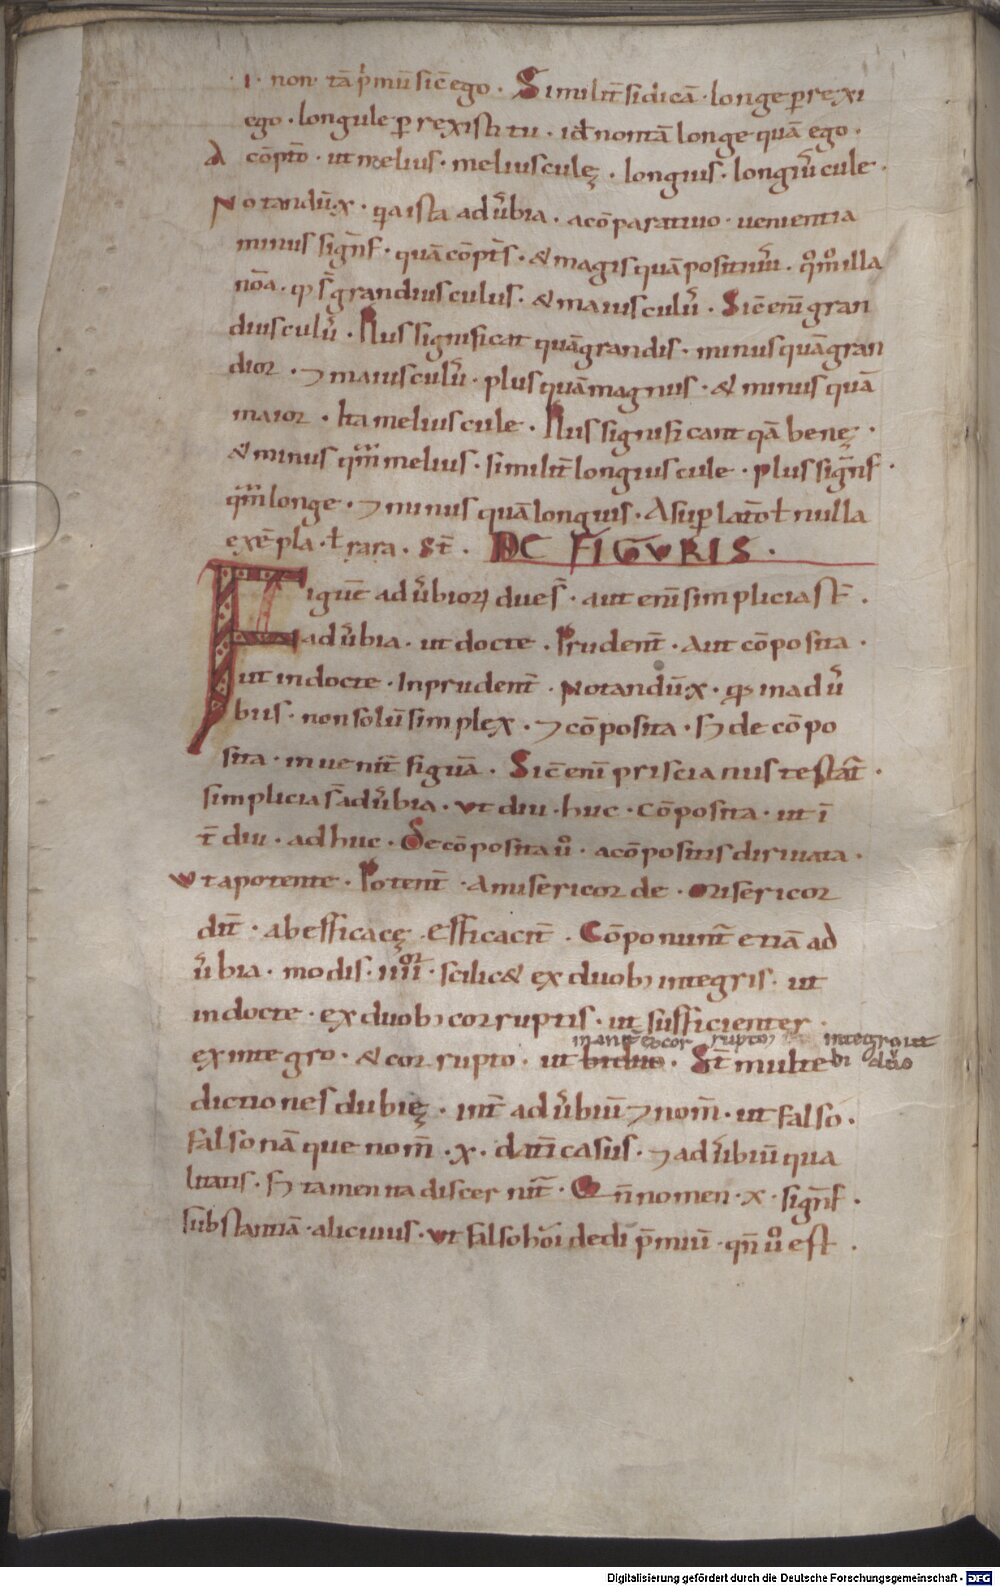 .i. non tā p̄mū sic̄ ego. Similit̄ si dicā. longe p̱rexi
ego. longule p̱rexisti tu. id non tā longe quā ego.
A cōpto. ut melius. meliusculę. longius. longiuscule.
Notandū. ista aduͥbia. a cōparatiuo. uenientia
minus signf̄. quā cōpts̄. & magis quā positiuū. illa
noā. grandiusculus. & maiusculus. Sic̄ enī gran
diusculus. Plus significat quā grandis. minus quā gran
dior. ⁊ maiusculus. plus quā magnus. & minus quā
maior. Ita meliuscule. Plus significant qā benę.
& minus qm̄ melius. similit̄ longiuscule. plus signf̄.
qm̄ longe. ⁊ minus quā longius. A sup̱latō nulla
exēpla. ł rara. St̄. DE FIGVRIS.
Figurē aduͥbioꝝ due s̄. aut enī simplicia st̄.
aduͥbia. ut docte. Prudent̄. Aut cōposita.
ut indocte. Inprudent̄. Notandū. x. in aduͥ
biis. non solū simplex. ⁊ cōposita. sꝫ decōpo
sita. inuenit̄ figurā. Sic̄ enī priscianus testat̄.
simplicia s̄ aduͥbia. ut diu. huc. Cōposita. ut ī
t̄ diu. adhuc. Decōposita uͦ. a cōpositis diriuata.
Vt a potente. Potent̄. A misericorde. Misericor
dit̄. ab efficacę. Efficacit̄. Cōponunt̄ etiā ad
uͥbia. modis. iiii. scilic& ex duobꝫ integris. ut
indocte. ex duobꝫ corruptis. ut sufficienter.
integro ut
ex integro. & corrupto. ut biduo. St̄ multe bi duo
dictiones dubię. int̄ aduͥbiū ⁊ nom̄. ut falso.
Falso nā que nom̄. x. dati casus. ⁊ aduͥbiū qua
litatis. sꝫ tamen ita discernit̄. Qn̄ nomen. x. signf̄.
substantiā. alicuius. Vt falso hoī dedi p̄miū. qn̄ uͦ est.
Digitalisierung gefördert durch die Deutsche Forschungsgemeinschaft - DFG